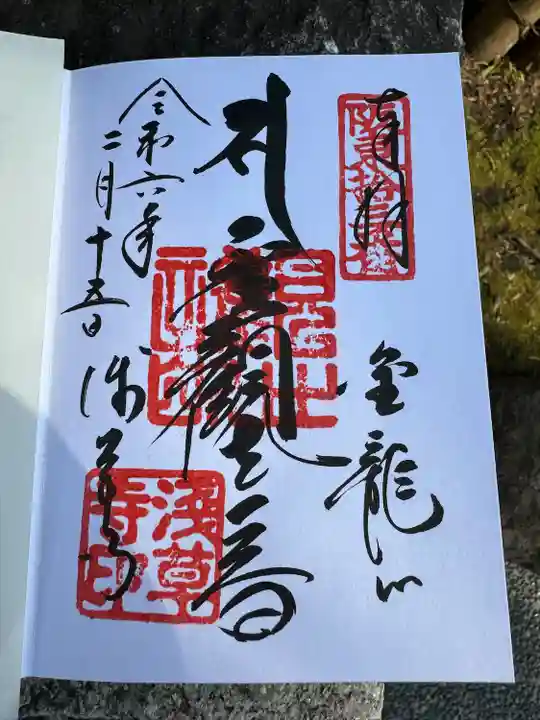 奉拝
金龍山
聖観世音
令和六年
二月十五日
浅草寺
浅草
寺印